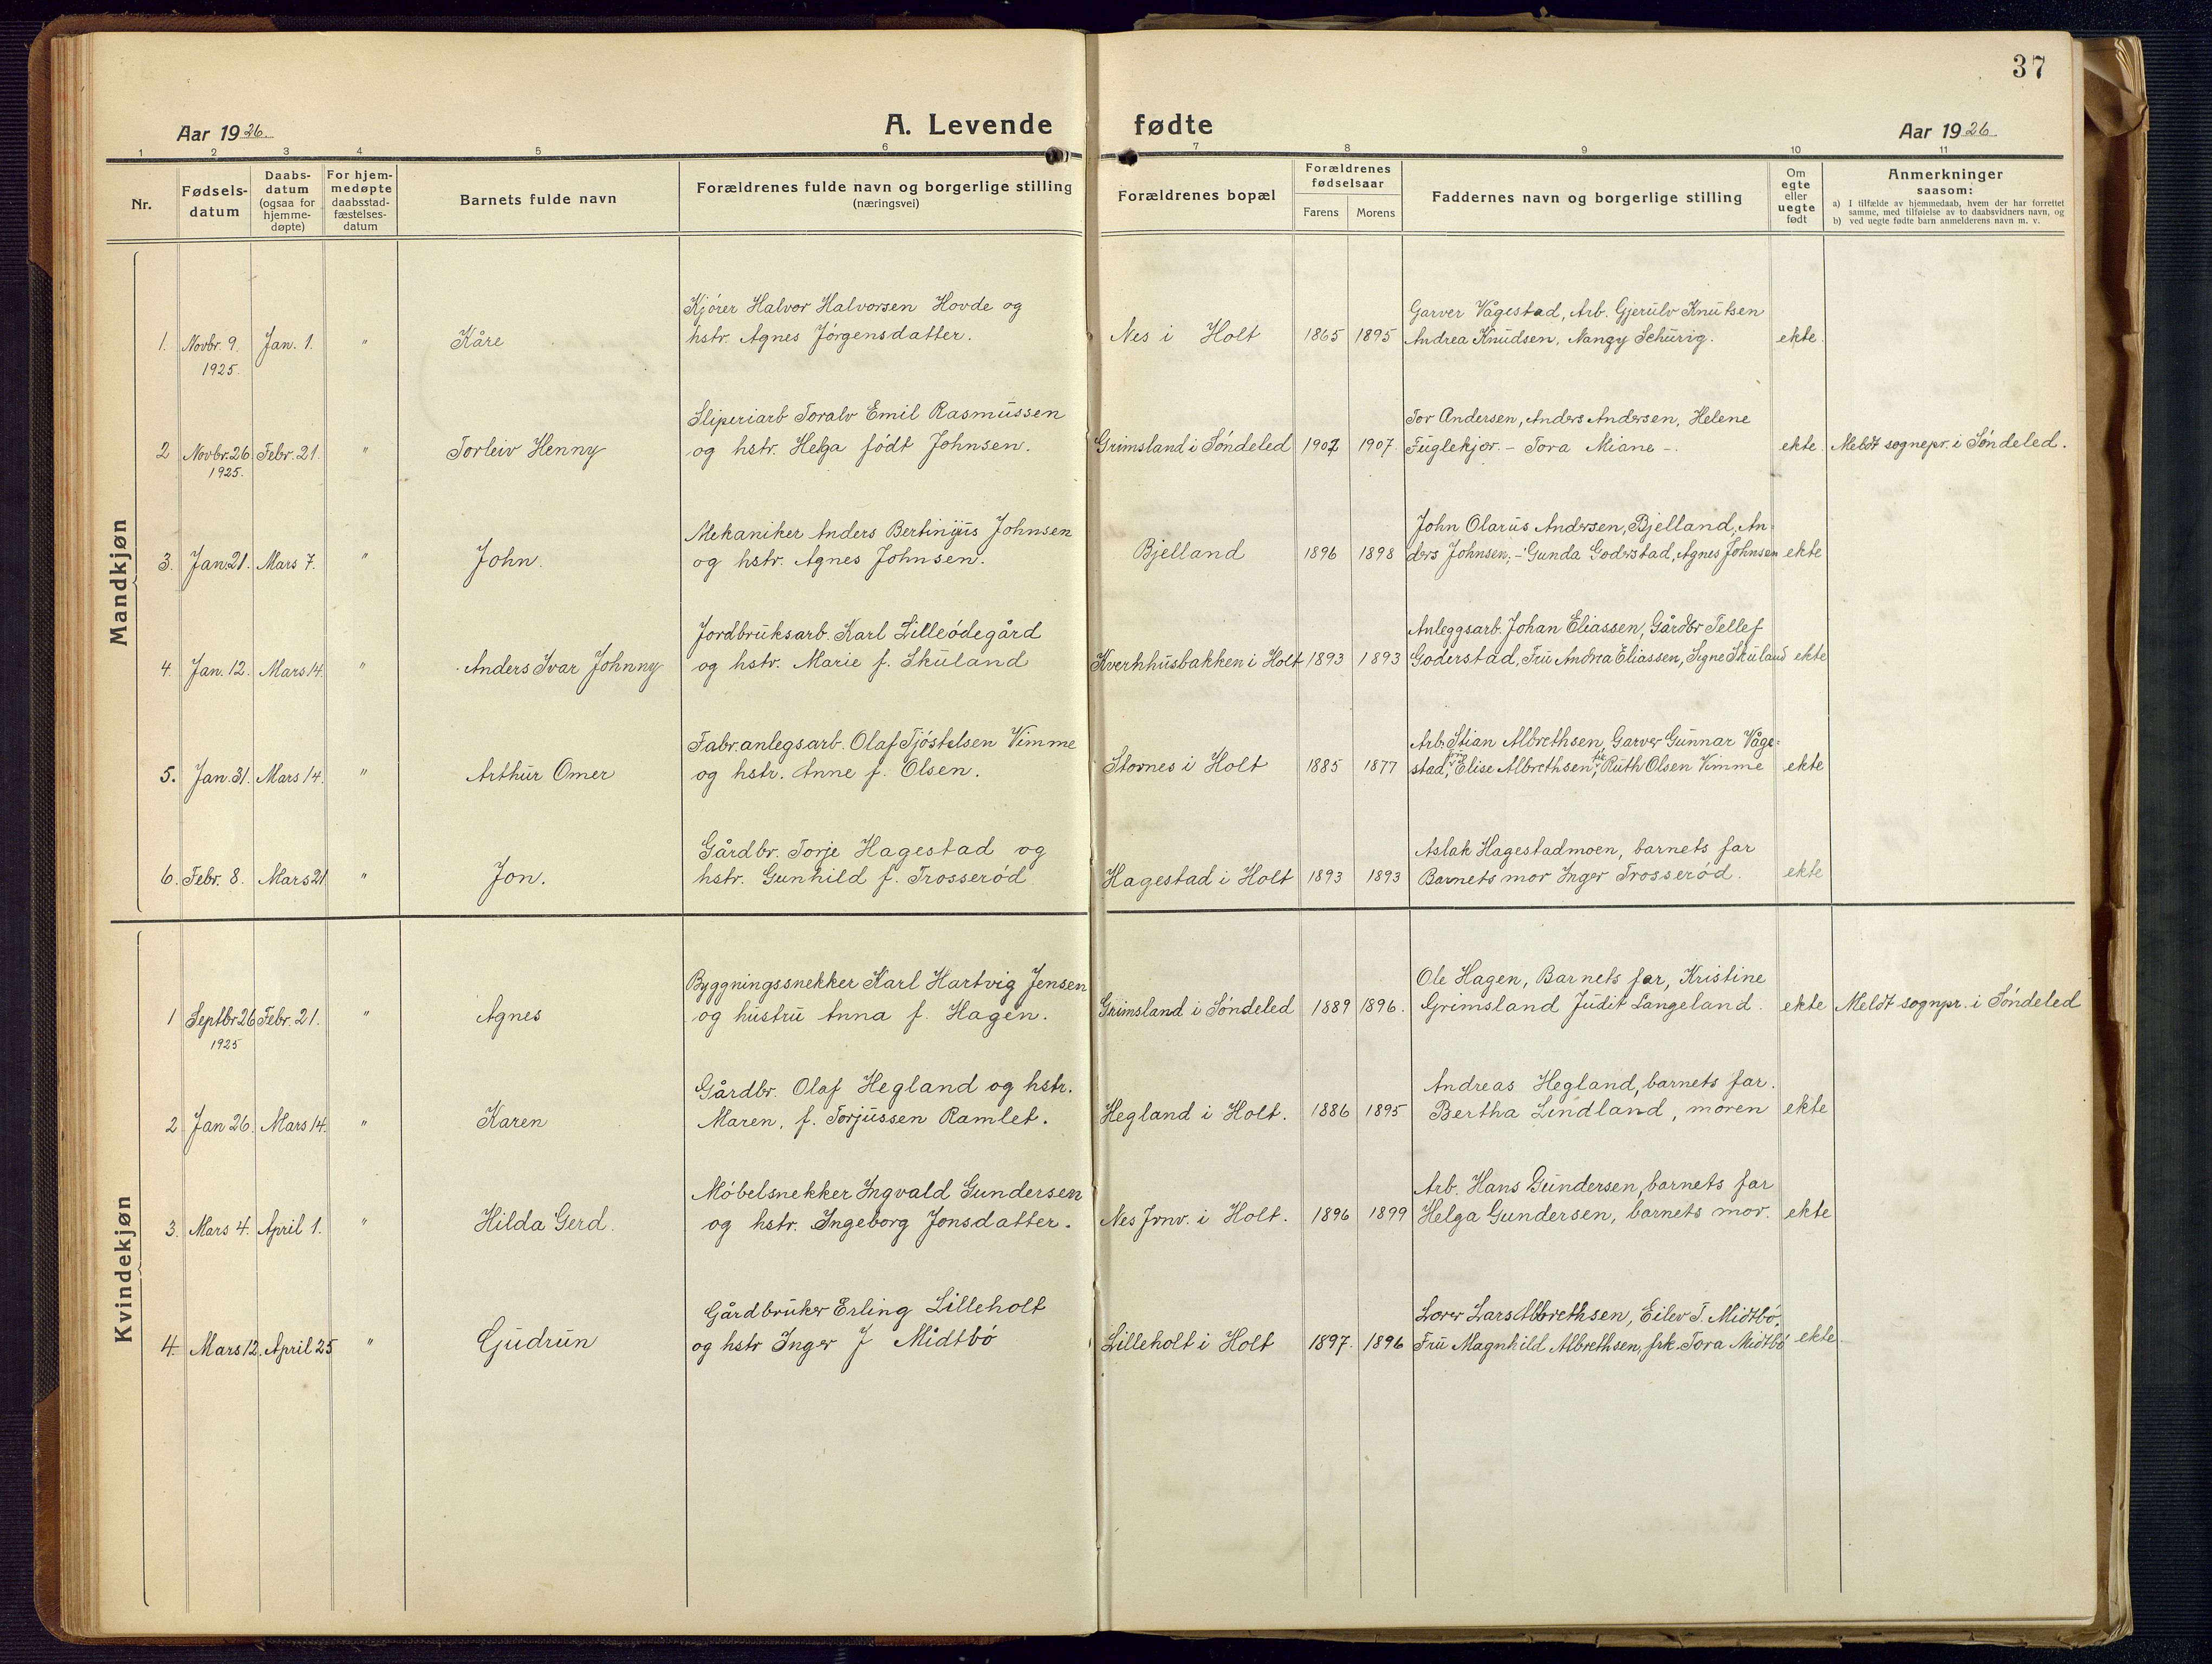 37
Aar 1926.
A. Levende fødte
Aar 1926.
1 2 3 4 5 6 7 8 9 10 11
Nr.
Fødsels-
datum
Daabs-
datum
(ogsaa for
hjemme-
døpte)
For hjem-
medøpte
daabsstad-
fæstelses-
datum
Barnets fulde navn
Forældrenes fulde navn og borgerlige stilling
(næringsvei)
Forældrenes bopæl
Forældrenes
fødselsaar
Farens Morens
Faddernes navn og borgerlige stilling
Om
egte
eller
uegte
født
Anmerkninger
saasom:
a) I tilfælde av hjemmedaab, hvem der har forrettet
samme, med tilføielse av to daabsvidners navn, og
b) ved uegte fødte barn anmelderens navn m. v.
Mandkjøn
Kjører Halvor Halvorsen Hovde og
Garver Vågestad, Arb. Gjerulv Knutsen
1. Novbr. 9. Jan. 1. " Kåre hstr. Agnes Jørgensdatter. Nes i Holt 1865 1895 Andrea Knudsen, Nangy Schürig. ekte.
1925.
Sliperiarb Toralv Emil Rasmussen
Tor Andersen, Anders Andersen, Helene
2 Novbr. 26 Febr. 21. " Torleiv Henny og hstr. Helga født Johnsen. Grimsland i Søndeled 1902 1907. Fuglekjær. - Tora Miane -. ekte. Meldt sognepr. i Søndeled.
1925.
Mekaniker Anders Bertinius Johnsen
John Olarus Andersen, Bjelland, An-
3. Jan. 21. Mars 7. " John. og hstr. Agnes Johnsen. Bjelland 1896 1898 ders Johnsen, - Gunda Goderstad, Agnes Johnsen ekte
Jordbruksarb. Karl Lilleødegård
Anleggsarb. Johan Eliassen, Gårdbr Tellef
4. Jan. 12. Mars 14. " Anders Ivar Johnny og hstr. Marie f. Skuland Kvernhusbakken i Holt 1893 1893 Goderstad, Fru Andrea Eliassen, Signe Skuland ekte
Fabr.anlegsarb. Olaf Tjøstelsen Vimme
Arb. Stian Albrethsen, Garver Gunnar Våge-
5. Jan. 31. Mars 14. " Arthur Omer og hstr. Anne f. Olsen. Stornes i Holt 1885 1877 stad, Elise Albrethsen, Ruth Olsen Vimme ekte
Gårdbr. Torje Hagestad og
Aslak Hagestadmoen, barnets far
6. Febr. 8. Mars 21 " Jon. hstr. Gunhild f. Trosserød Hagestad i Holt 1893 1893 Barnets mor Inger Trosserød. ekte
Kvindekjøn
Byggningssnekker Karl Hartvig Jensen
Ole Hagen, Barnets far, Kristine
1 Septbr 26 Febr. 21. " Agnes og hustru Anna f. Hagen. Grimsland i Søndeled 1889 1896. Grimsland Judit Langeland. ekte Meldt sognpr. i Søndeled
1925
Gårdbr. Olaf Hegland og hstr.
Andreas Hegland, barnets far.
2 Jan 26. Mars 14. " Karen Maren, f. Torjussen Ramlet. Hegland i Holt. 1886 1895 Bertha Lindland, moren ekte
Møbelsnekker Ingvald Gundersen
Arb. Hans Gundersen, barnets far
3. Mars 4. April 1. " Hilda Gerd. og hstr. Ingeborg Jonsdatter. Nes Jrnv. i Holt. 1896 1899 Helga Gundersen, barnets mor. ekte
Gårdbruker Erling Lilleholt
Lærer Lars Albrethsen, Eilev T. Midtbø,
4. Mars 12. April 25 " Gudrun og hstr Inger J Midtbø Lilleholt i Holt 1897. 1896 Fru Magnhild Albrethsen, frk. Tora Midtbø ekte.